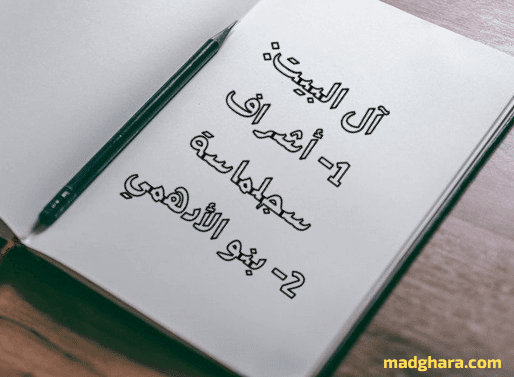 آل البيت:
1- أشراف
سجلماسة
2- بنو الأدهمي
madghara.com